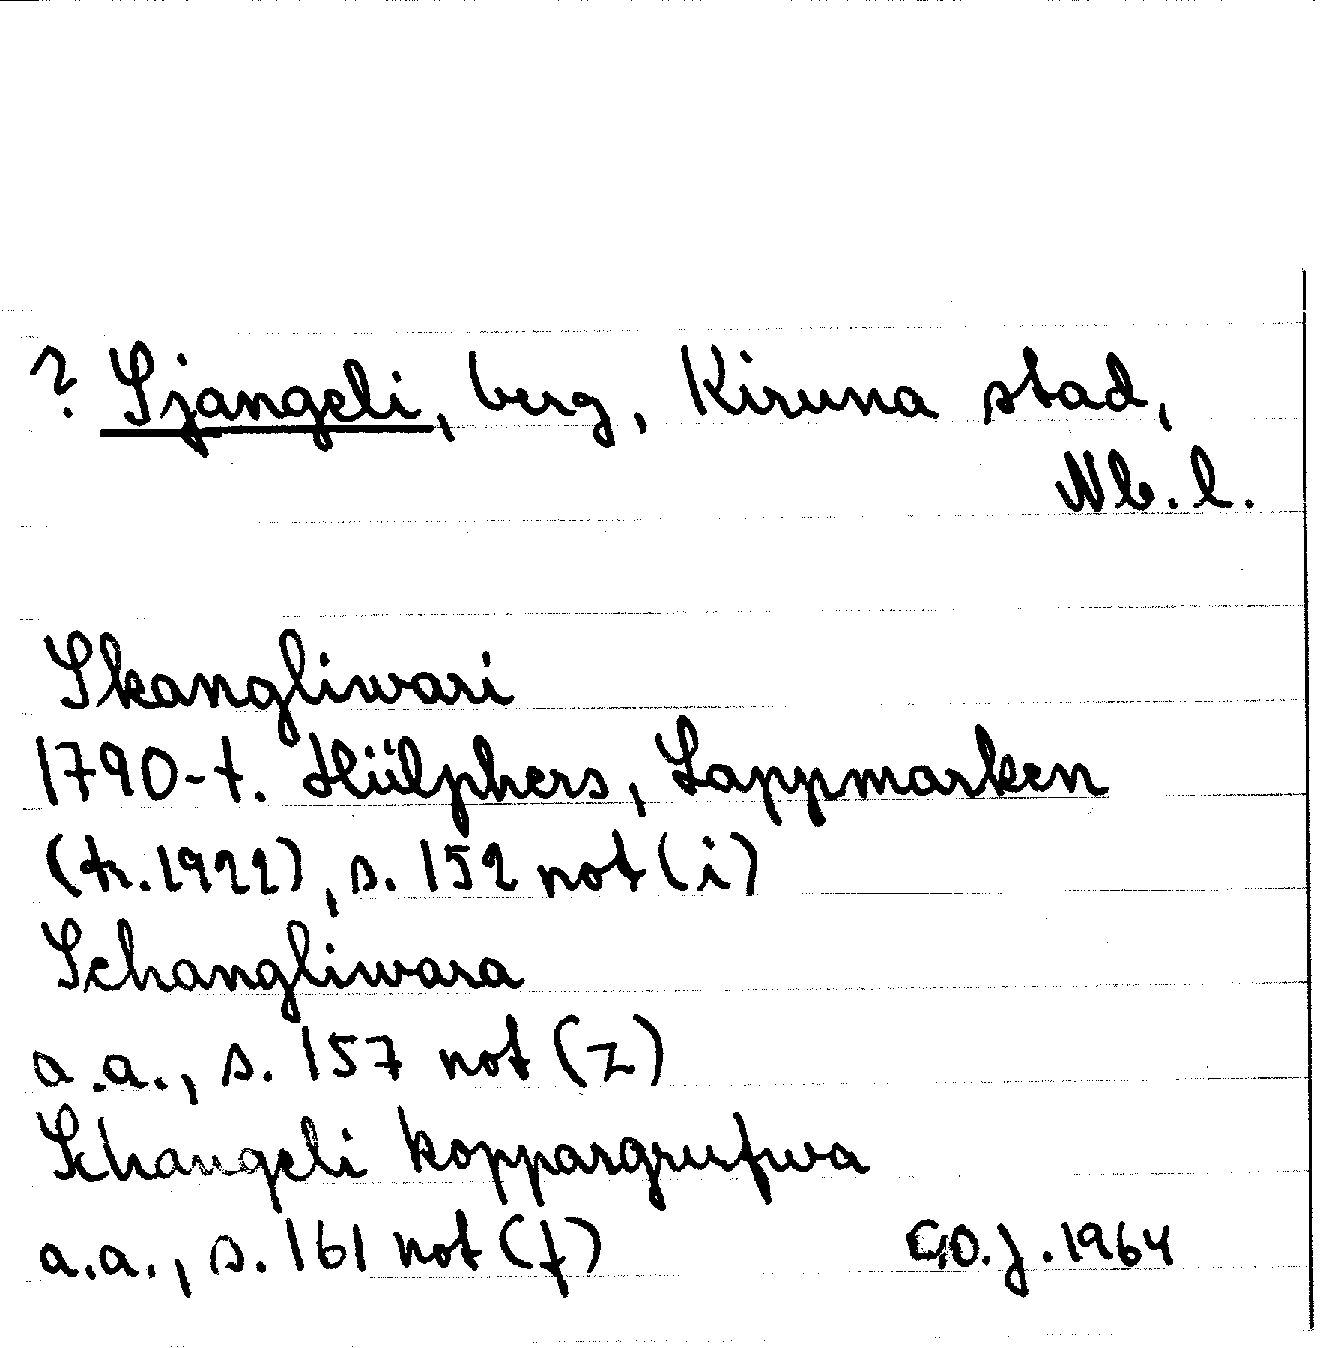 ? Sjangeli, berg, Kiruna stad,
Nb. l.
Skangliwari
1790-t. Hülphers, Lappmarken
(tr. 1922), s. 152 not (i)
Schangliwara
a.a., s. 157 not (z)
Schangeli koppargrufwa
a.a., s. 161 not (f) G.O.J. 1964